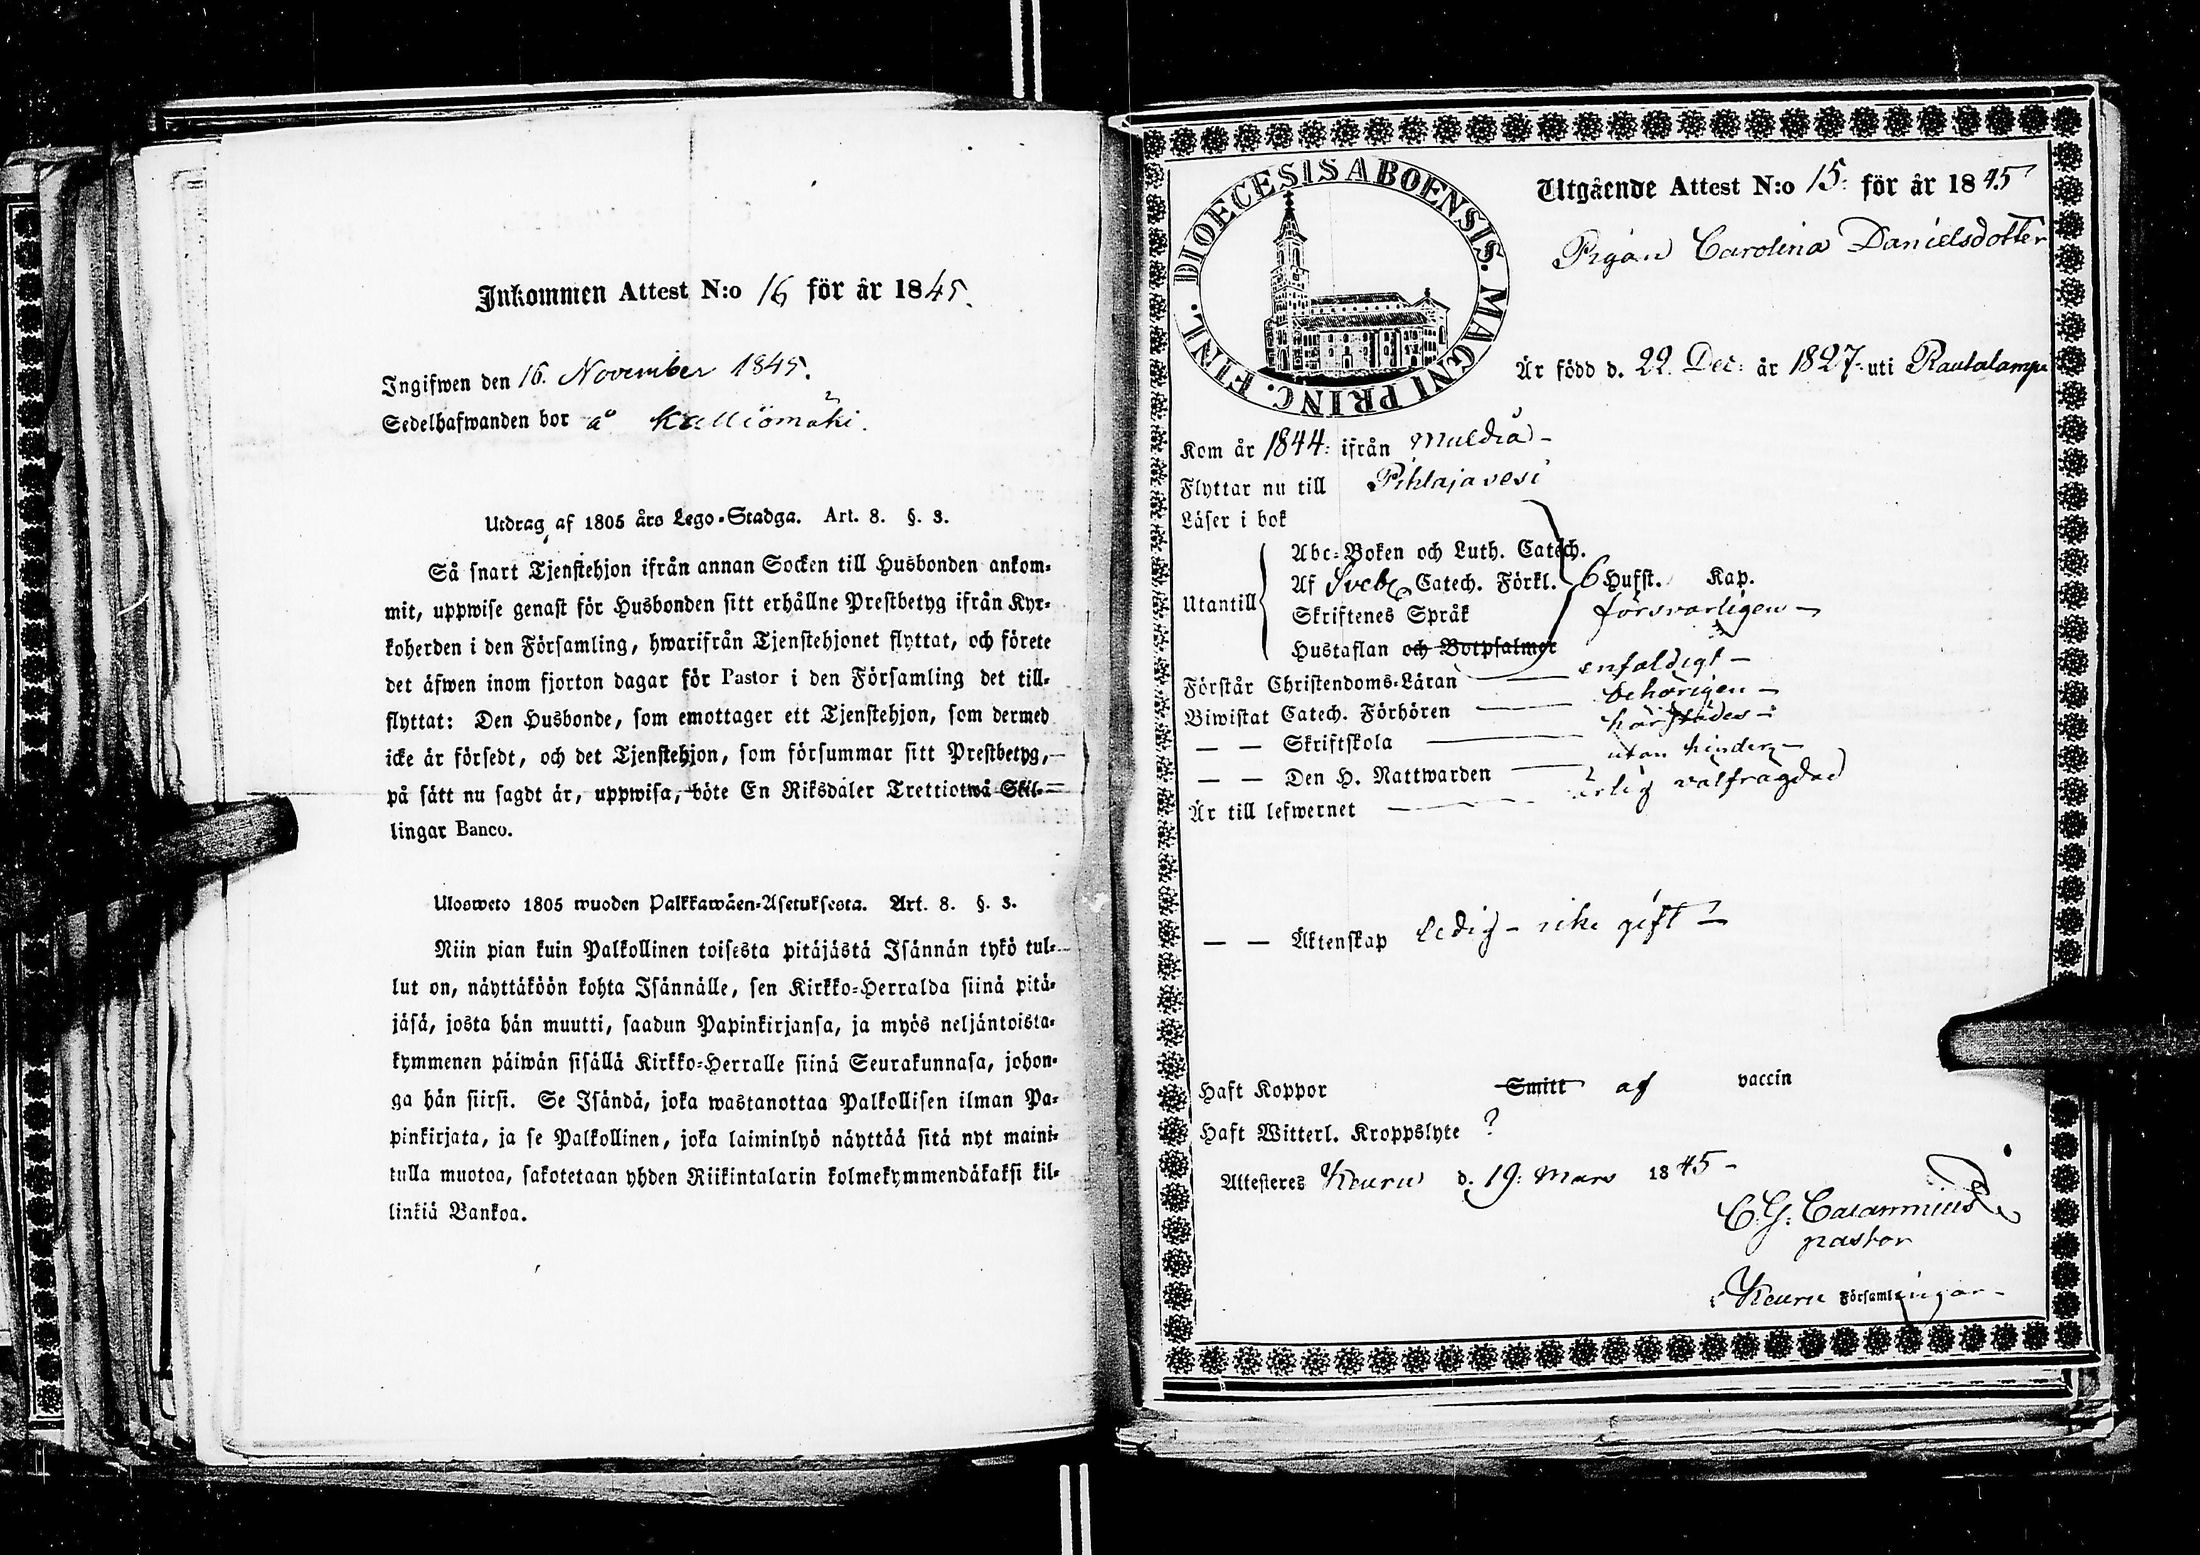 Inkommen Attest N:o 16 för år 1845.
Ingifwen den 16. November 1845.
Sedelhafwanden bor å Kalliomäki.
Utdrag af 1805 års Lego-Stadga. Art. 8. §. 3.
Så snart Tjenstehjon ifrån annan Socken till Husbonden ankom-
mit, uppwise genast för Husbonden sitt erhållne Prestbetyg ifrån Kyr-
koherden i den Församling, hwarifrån Tjenstehjonet flyttat, och förete
det äfwen inom fjorton dagar för Pastor i den Församling det till-
flyttat: Den Husbonde, som emottager ett Tjenstehjon, som dermed
icke är försedt, och det Tjenstehjon, som försummar sitt Prestbetyg,
på sätt nu sagdt är, uppwisa, böte En Riksdaler Trettiotwå Skil-
lingar Banco.
Ulosweto 1805 wuoden Palkkawäen-Asetuksesta. Art. 8. §. 3.
Niin pian kuin Palkollinen toisesta pitäjästä Isännän tykö tul-
lut on, näyttäköön kohta Isännälle, sen Kirkko-Herralda siinä pitä-
jäsä, josta hän muutti, saadun Papinkirjansa, ja myös neljäntoista-
kymmenen päiwän sisällä Kirkko-Herralle siinä Seurakunnasa, johon-
ga hän siirsi. Se Isändä, joka wastanottaa Palkollisen ilman Pa-
pinkirjata, ja se Palkollinen, joka laiminlyö näyttää sitä nyt maini-
tulla muotoa, sakotetaan yhden Riikintalarin kolmekymmendäkaksi kil-
linkiä Bankoa.
DIOECESIS ABOENSIS. MAGNI PRINC. FINL.
Utgående Attest N:o 15: för år 1845
Pigan Carolina Danielsdotter
Är född d. 22. Dec: år 1827. uti Rautalampi
Kom år 1844: ifrån Muldia -
Flyttar nu till Pihlajavesi
Läser i bok
Utantill
Abc-Boken och Luth. Catech.
Af Sveb. Catech. Förkl. 6 Hufst. Kap.
Skriftenes Språk försvarligen -
Hustaflan och Botpsalmer
Förstår Christendoms-Läran enfaldigt -
Biwistat Catech. Förhören behörigen -
— — Skriftskola härstädes -
— — Den H. Nattwarden utan hinder -
Är till lefwernet ärlig välfrägdad
— — Äktenskap ledig - icke gift -
Haft Koppor Smitt af vaccin
Haft Witterl. Kroppslyte ?
Attesteras Keuru d. 19. Mars 1845 -
C. G. Calamnius
pastor
i Keuru Församlingar -